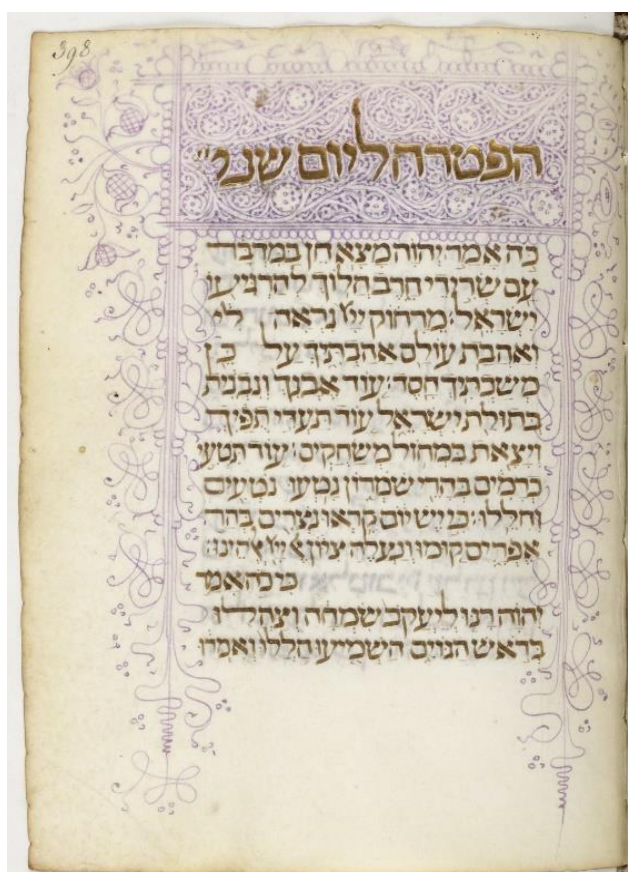 398
הפטרה ליום שני
כה אמר יהוה מצא חן במדבר
עם שרידי חרב הלוך להרגיעו
ישראל׃ מרחוק ייי נראה לי
ואהבת עולם אהבתיך על כן
משכתיך חסד׃ עוד אבנך ונבנית
בתולת ישראל עוד תעדי תפיך
ויצאת במחול משחקים׃ עוד תטעי
כרמים בהרי שמרון נטעו נטעים
וחללו׃ כי יש יום קראו נצרים בהר
אפרים קומו ונעלה ציון אל ייי אלהינו׃
כי כה אמר
יהוה רנו ליעקב שמחה וצהלו
בראש הגוים השמיעו הללו ואמרו